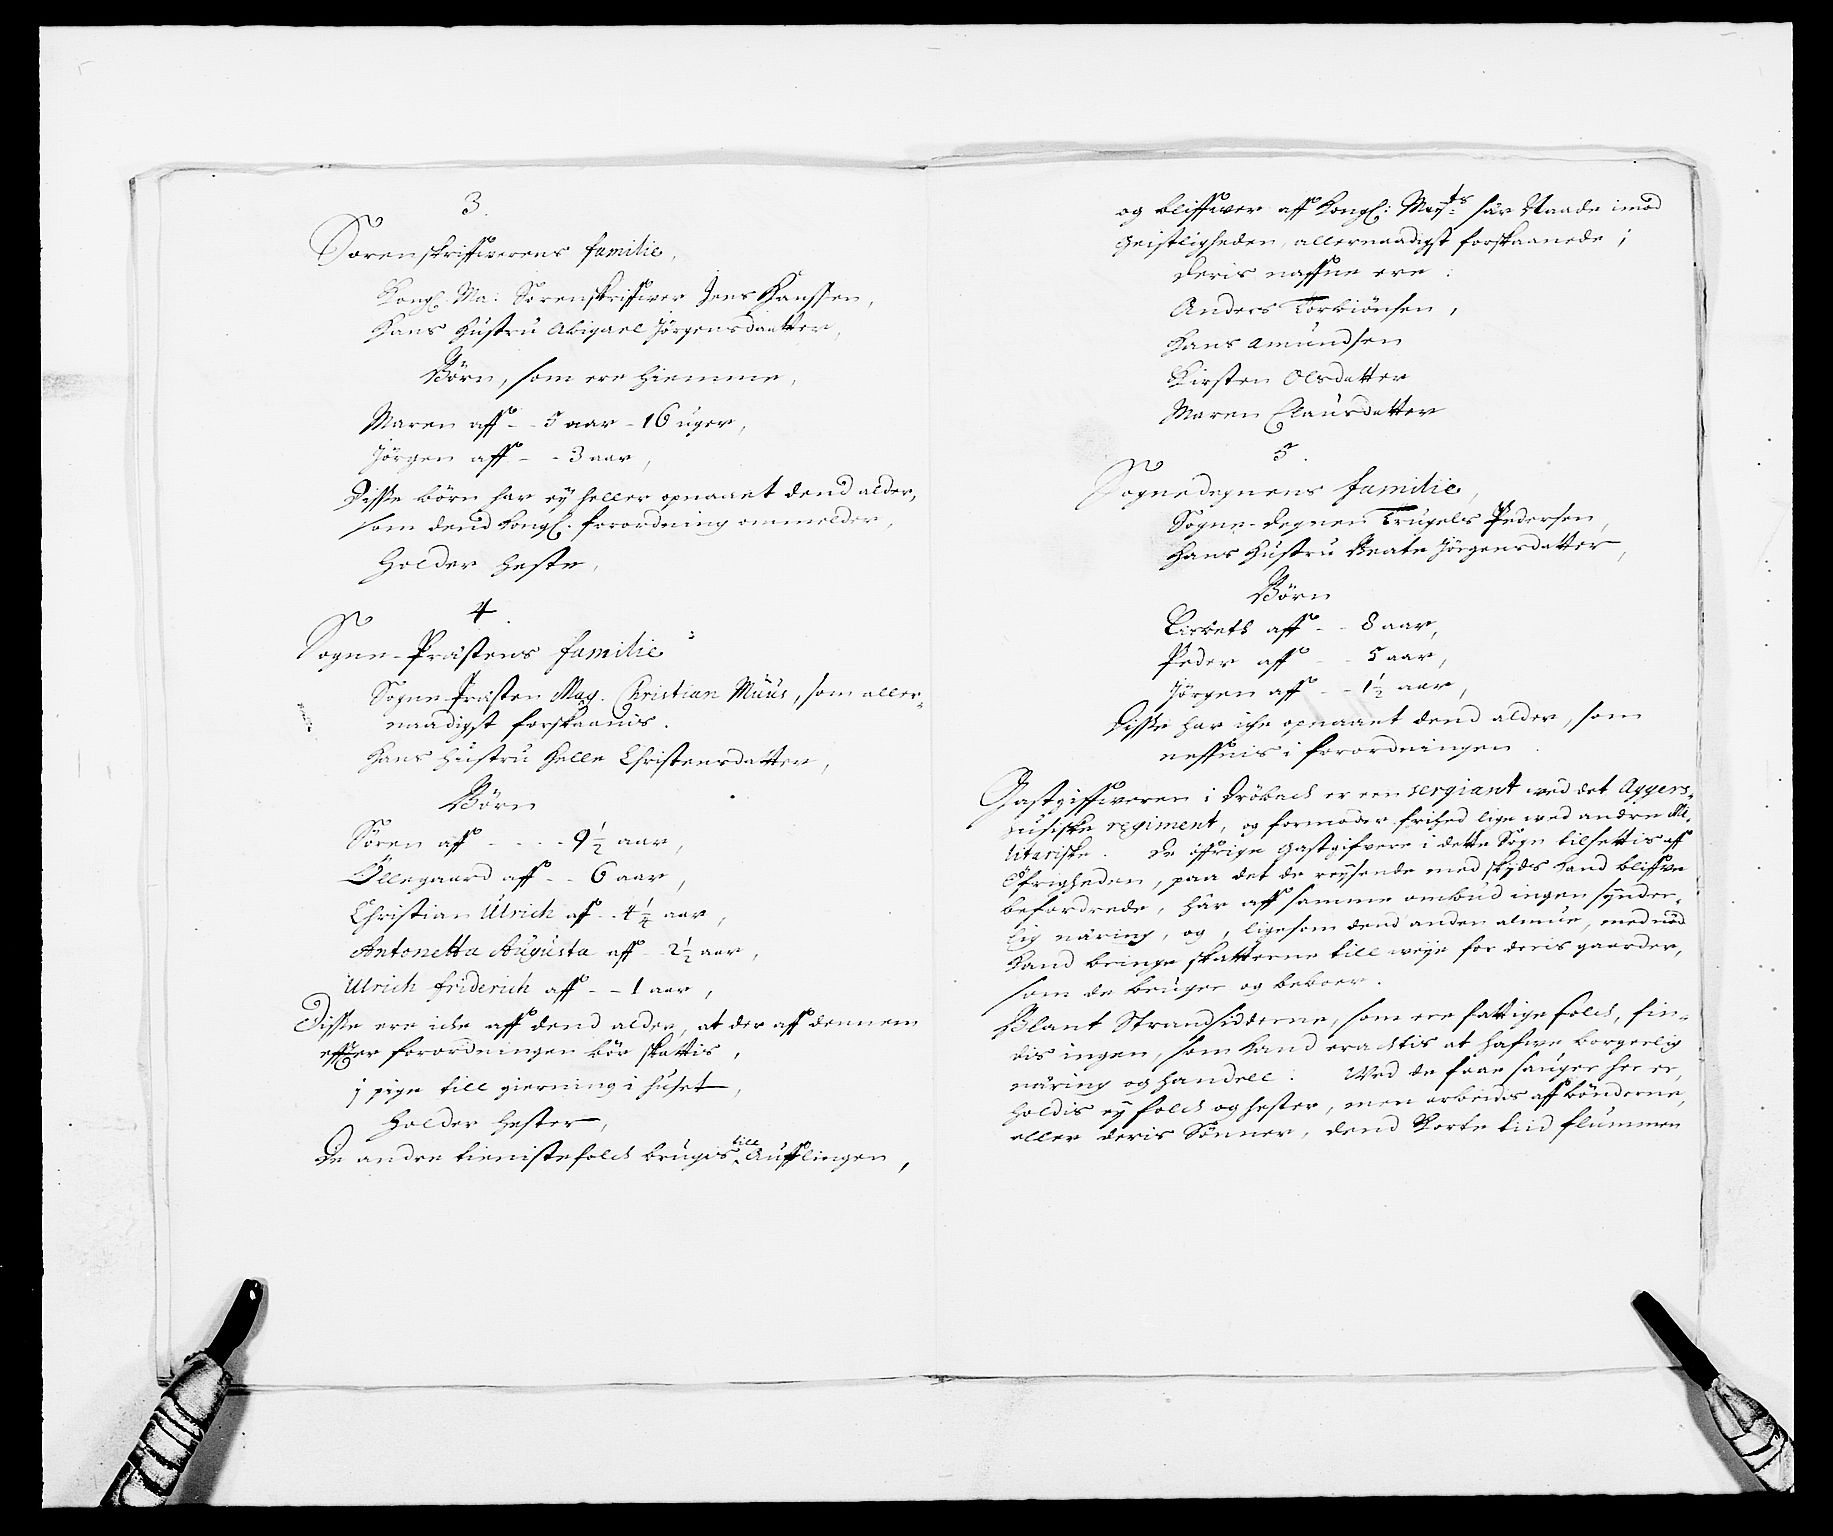 3.
Sorenskriffwerens familie,
Kongl. Ma: Sorenskriffwer Jens Hanssen,
Hans Hustru Abigael Jörgensdaatter,
Börn, som ere hiemme,
Maren aff - - 5 aar - 16 uger,
Jörgen aff - - 3 aar,
Disse börn har eÿ heller opnaaet dend alder,
som dend kongl. forordning ommelder,
Holder heste,
4.
Sogne-Præstens familie
Sogne-Præsten Mag. Christian Muus, som aller-
naadigst forskaanis.
Hans Hustru Helle Christensdatter,
Börn
Sören aff - - - - 9 1/2 aar,
Öllegaard aff - - 6 aar,
Christian Ulrich aff - - 4 1/4 aar,
Antonetta Augusta aff - - 2 1/2 aar,
Ulrich friderich aff - - 1 aar,
Disse ere iche aff dend alder, at der aff dennem
effter forordningen bör skattis,
j pige till gierning i huset,
Holder hester,
De andre tienistefolch brugis till Aufflingen,
og bliffwer aff Kongl: Mayts: sær Naade imod
Geistligheden, allernaadigst forskaanede;
Deris naffne ere:
Anders Torbiönsen,
Hans Amundsen
Kirsten Olsdatter
Maren Clausdatter
5.
Sognedegnens familie,
Sogne-degnen Trugels Pedersen,
Hans Hustru Beate Jörgensdatter,
Börn
Lisbeth aff - - 8 aar,
Peder aff - - 5 aar,
Jörgen aff - - 1 1/2 aar,
Disse har iche opnaaet dend alder, som
neffnis i forordningen.
Gastgiffweren i Dröbach er een sergiant wed det Aggers-
husiske regiment, og formoder frihed lige wed andre Mi-
litariske. De öffrige Gastgifwere i dette Sogn tilsettis aff
Öfrigheden, paa det de reÿsende med skyds kand bliffwe
befordrede, här aff samme ombud ingen synder-
lig näring, og, ligesom dend anden almue, med nöd
kand bringe skatterne till weÿe for deris gaarder,
som de bruger og beboer.
Blant Strandsidderne, som ere fattige folch, fin-
dis ingen, som kand erachtis at hafwe borgerlig
näring og handell: Wed de faae sauger her er,
holdis eÿ folch og hester, men arbeidis aff bönderne,
eller deris Sönner, dend korte tiid flummen